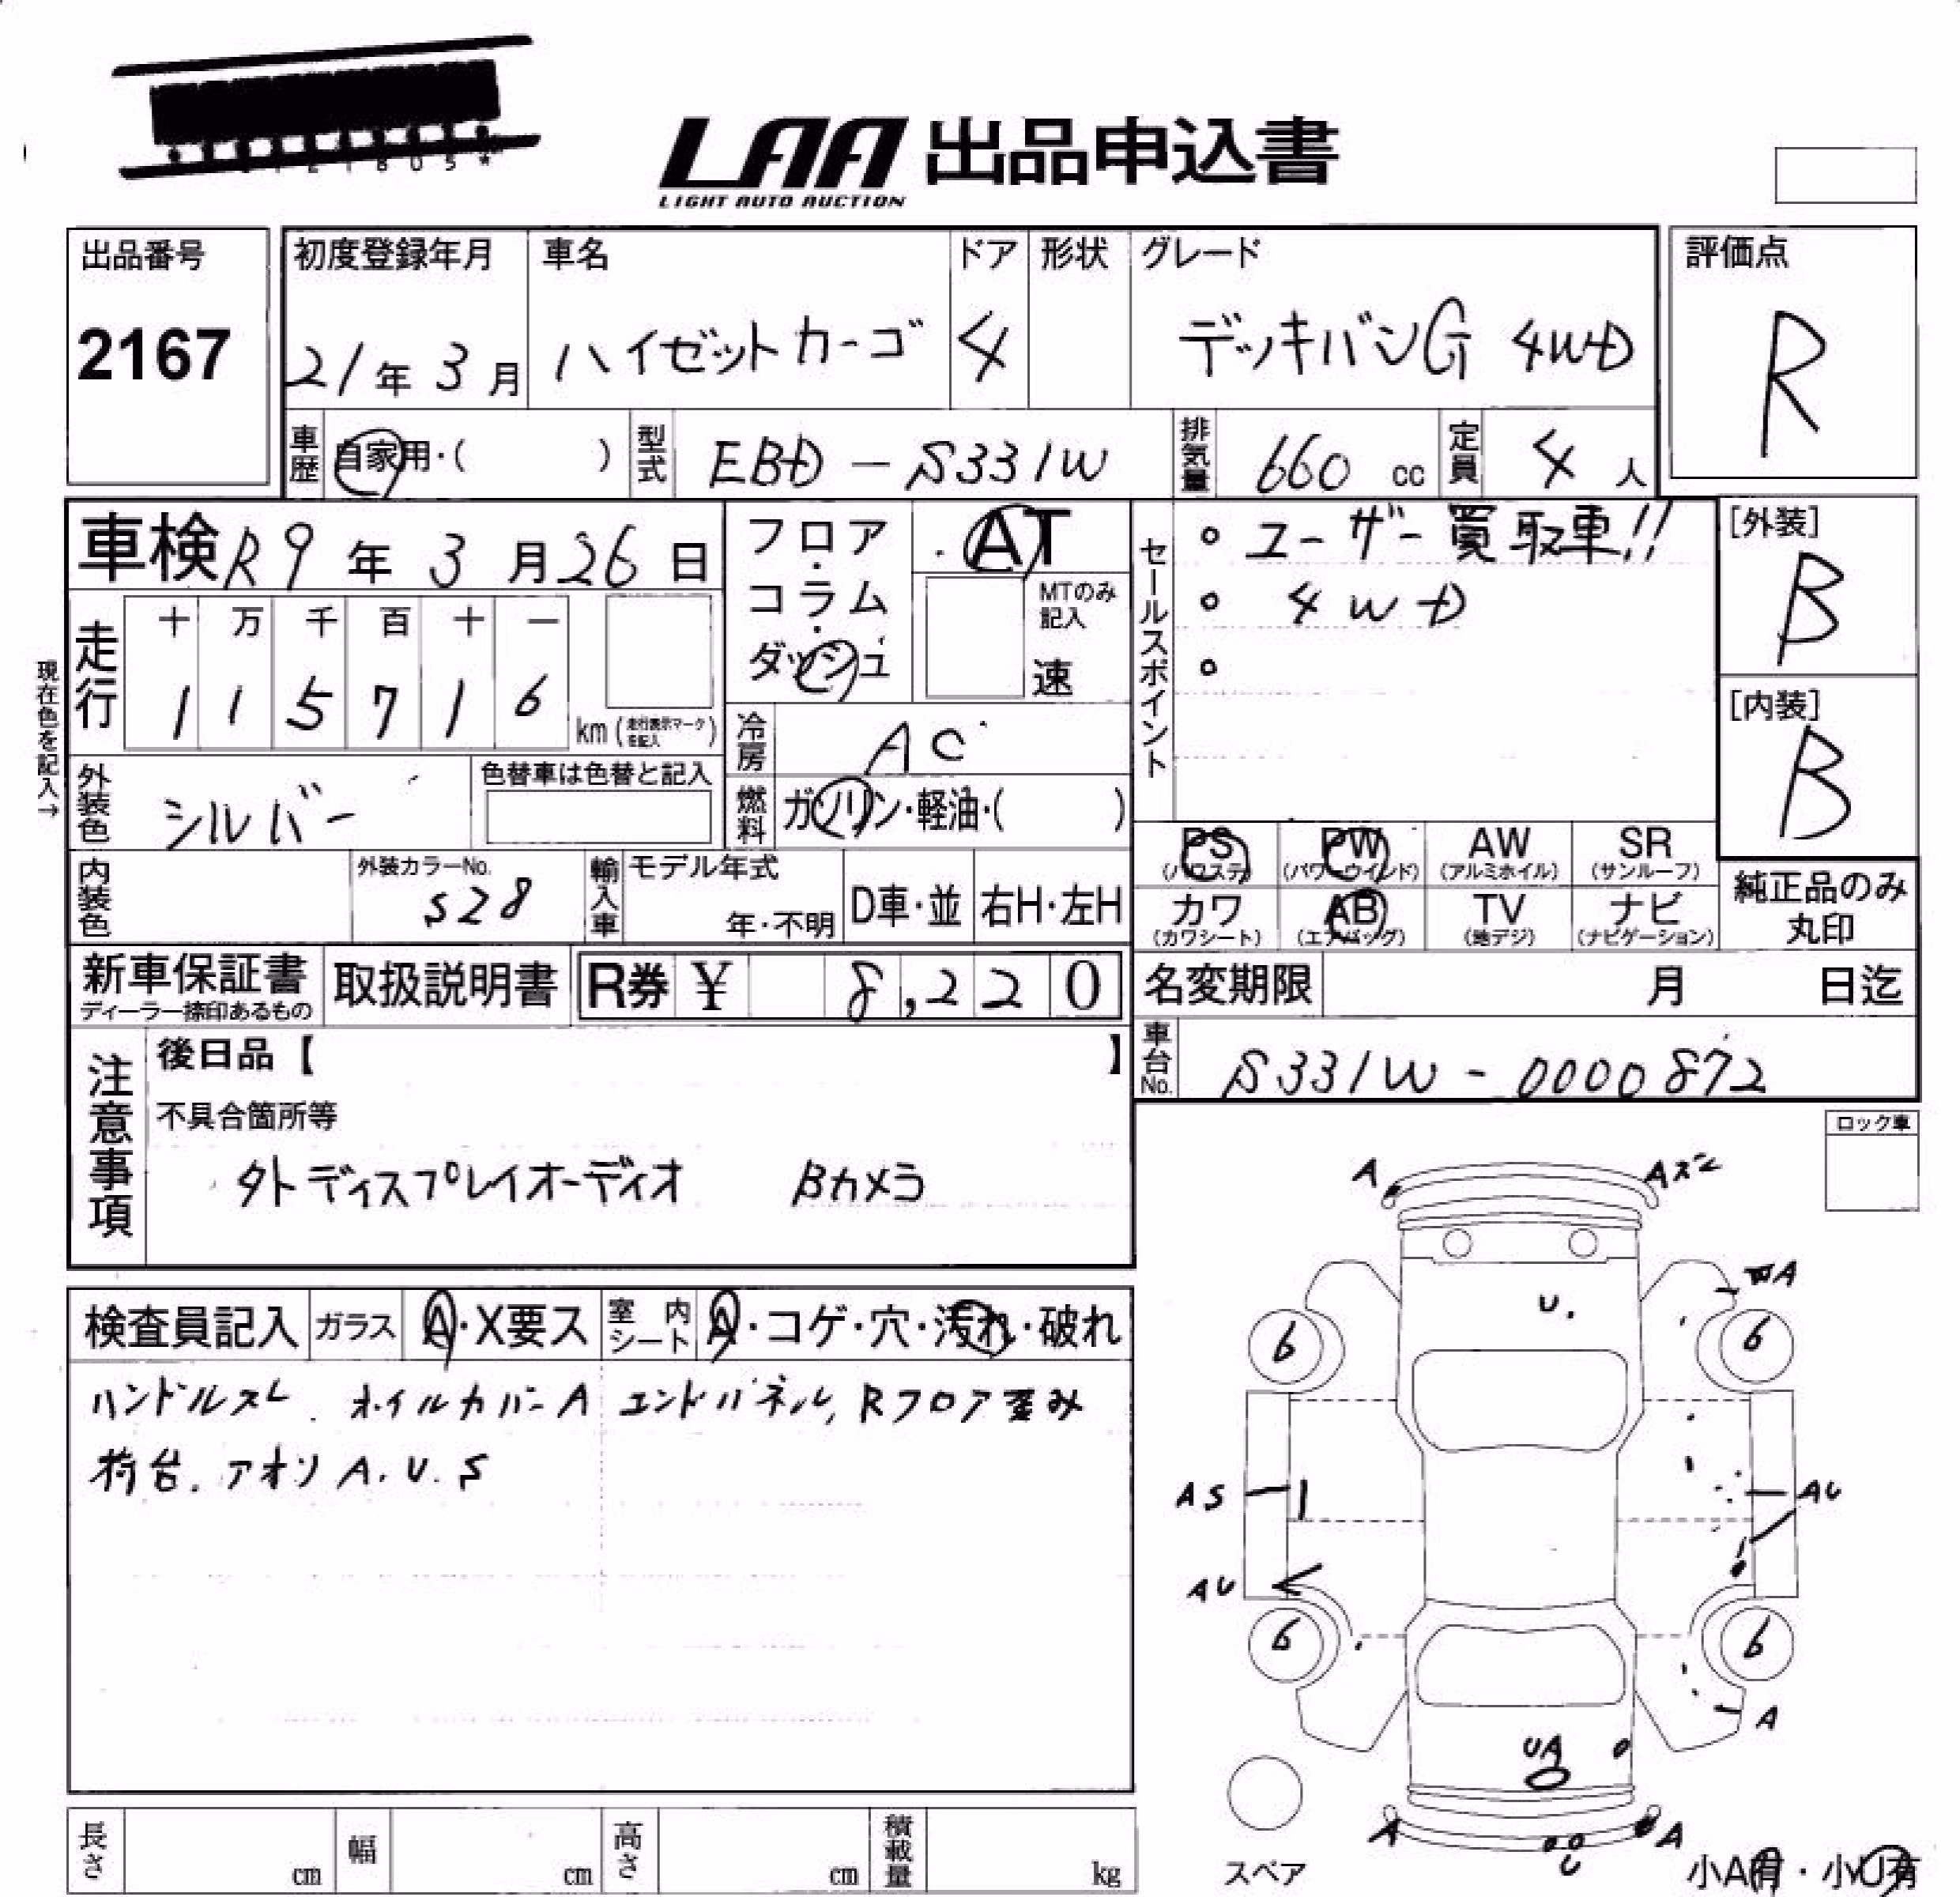 LAA 出品申込書
LIGHT AUTO AUCTION
出品番号
2167
初度登録年月
21年3月
車名
ハイゼットカーゴ
ドア
4
形状
グレード
デッキバンG 4WD
評価点
R
車歴
自家用・( )
型式
EBD-S331W
排気量
660 cc
定員
4 人
車検 R9年3月26日
フロア・コラム・ダッシュ
AT
MTのみ記入
速
セールスポイント
ユーザー買取車!!
4WD
[外装]
B
[内装]
B
現在色を記入→
走行
十 万 千 百 十 一
1 1 5 7 1 6
km (走行表示マークを記入)
冷房
AC
外装色
シルバー
色替車は色替と記入
燃料
ガソリン・軽油・( )
内装色
外装カラーNo.
S28
輸入車
モデル年式
年・不明
D車・並
右H・左H
PS (パワステ)
PW (パワーウインド)
AW (アルミホイル)
SR (サンルーフ)
カワ (カワシート)
AB (エアバッグ)
TV (地デジ)
ナビ (ナビゲーション)
純正品のみ丸印
新車保証書
ディーラー捺印あるもの
取扱説明書
R券 ¥ 8,220
名変期限 月 日迄
車台No.
S331W-0000872
注意事項
後日品【 】
不具合箇所等
外ディスプレイオーディオ Bカメラ
ロック車
検査員記入
ガラス
A・X要ス
室内シート
A・コゲ・穴・汚れ・破れ
ハンドルスレ ホイルカバーA エンドパネル, Rフロア歪み
荷台. アオリ A. U. S
A
Aズレ
A
U.
6
6
AS
AU
AU
6
6
A
UA
A
A
U
スペア
小A有・小U有
長さ cm
幅 cm
高さ cm
積載量 kg